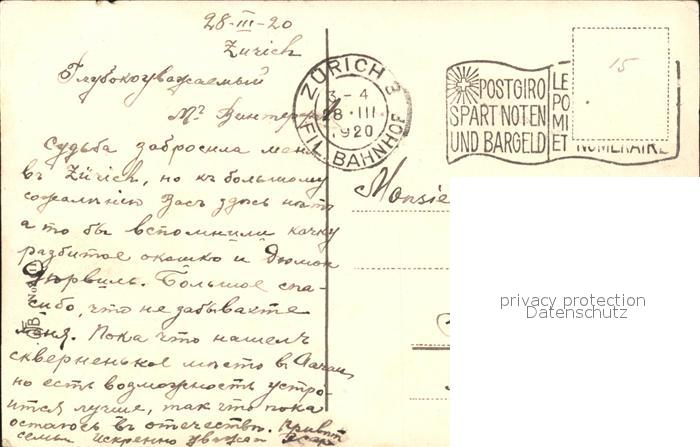 28-III-20
Zürich
Глубокоуважаемый
Mr Винтерфе
Судьба забросила меня
въ Zürich, но къ большому
сожалѣнію Васъ здѣсь нѣтъ
а то бы вспомнили качку
разбитое окошко и Дюмон
Дюрвиль. Большое спа-
сибо, что не забываете
меня. Пока что нашелъ
скверненькое мѣсто въ Aarau,
но есть возможность устро-
иться лучше, такъ что пока
остаюсь въ отечествѣ. Привѣтъ
семьѣ искренно уважа
ZÜRICH 3
3-4
28.III.
1920
FIL. BAHNHOF
POSTGIRO
SPART NOTEN
UND BARGELD
LE
PO
MI
ET NUMERAIRE
15
Monsie
privacy protection
Datenschutz